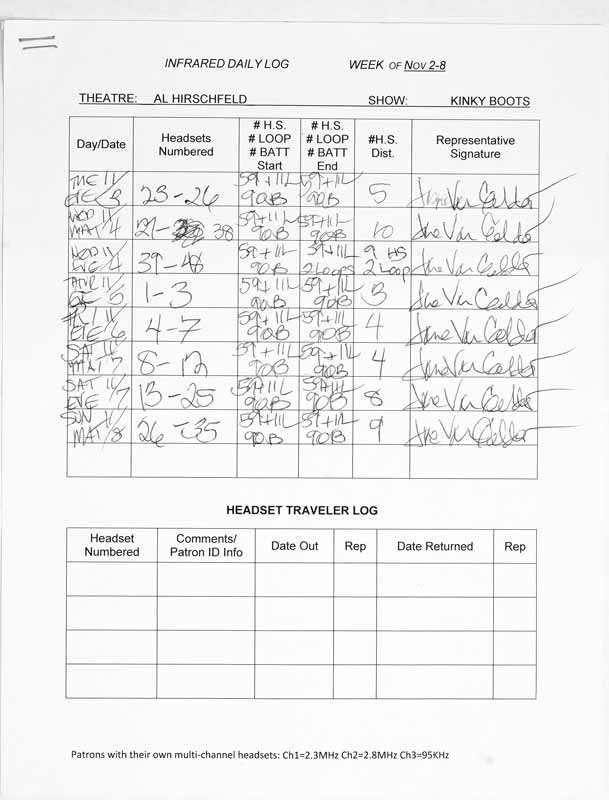 INFRARED DAILY LOG WEEK OF NOV 2-8
THEATRE: AL HIRSCHFELD SHOW: KINKY BOOTS
Day/Date Headsets Numbered # H.S. # LOOP # BATT Start # H.S. # LOOP # BATT End #H.S. Dist. Representative Signature
TUE 11/ EVE 3 23-26 59+11L 90B 59+11L 90B 5 Jane Van Gelder
WED 11/ MAT 4 27- 38 59+11L 90B 59+11L 90B 10 Jane Van Gelder
WED 11/ EVE 4 39-48 59+11L 90B 59+11L 2 Loops 9 HS 2 Loop Jane Van Gelder
5 1-3 59+11L 90B 59+11L 90B 3 Jane Van Gelder
EVE 6 4-7 59+11L 90B 59+11L 90B 4 Jane Van Gelder
SAT 11/ MAT 7 8-12 59+11L 90B 59+11L 90B 4 Jane Van Gelder
SAT 11/ EVE 7 13-25 59+11L 90B 59+11L 90B 8 Jane Van Gelder
SUN 11/ MAT 8 26-35 59+11L 90B 59+11L 90B 9 Jane Van Gelder
HEADSET TRAVELER LOG
Headset Numbered Comments/ Patron ID Info Date Out Rep Date Returned Rep
Patrons with their own multi-channel headsets: Ch1=2.3MHz Ch2=2.8MHz Ch3=95KHz